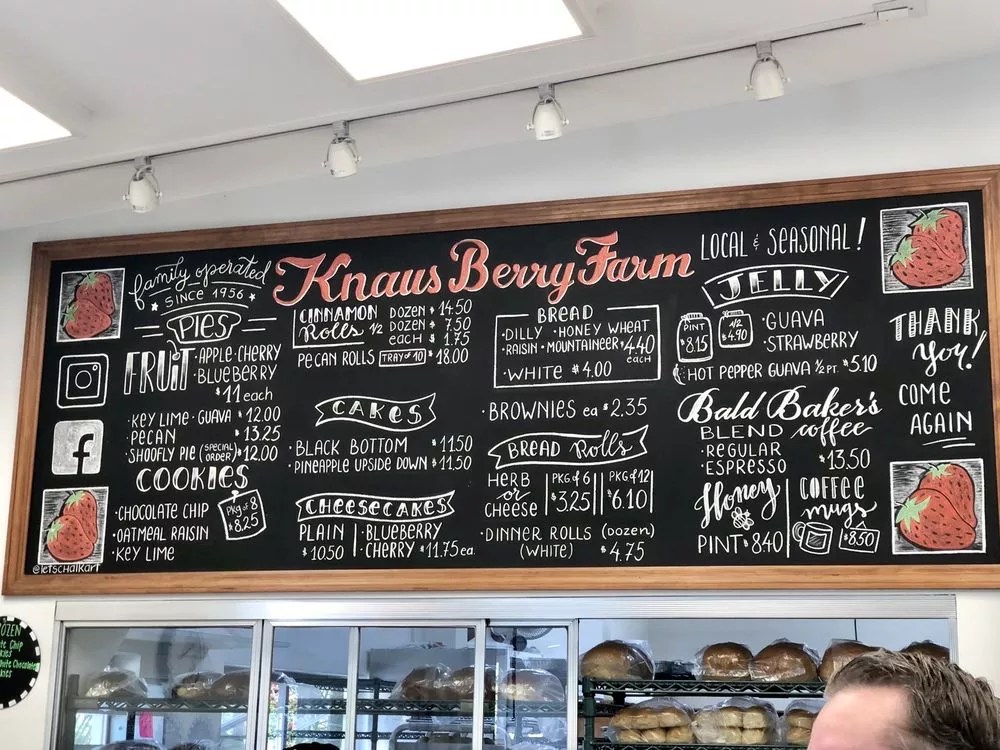 family operated
SINCE 1956
Knaus Berry Farm
LOCAL & SEASONAL!
PIES
FRUIT
· APPLE · CHERRY
· BLUEBERRY
$11 each
· KEY LIME · GUAVA $12.00
· PECAN $13.25
· SHOOFLY PIE (SPECIAL ORDER) $12.00
COOKIES
· CHOCOLATE CHIP
· OATMEAL RAISIN
· KEY LIME
PKg of 8
$8.25
@letschalkart
CINNAMON Rolls
DOZEN $14.50
1/2 DOZEN $7.50
each $1.75
PECAN ROLLS TRAY OF 10 $18.00
CAKES
· BLACK BOTTOM $11.50
· PINEAPPLE UPSIDE DOWN $11.50
CHEESECAKES
PLAIN
$10.50
BLUEBERRY
· CHERRY $11.75 ea.
BREAD
· DILLY · HONEY WHEAT
· RAISIN · MOUNTAINEER $4.40 each
· WHITE $4.00
· BROWNIES ea $2.35
BREAD Rolls
HERB or CHEESE
PKG OF 6
$3.25
PKG OF 12
$6.10
· DINNER ROLLS (dozen)
(WHITE) $4.75
JELLY
PINT
$8.15
1/2
$4.90
· GUAVA
· STRAWBERRY
HOT PEPPER GUAVA 1/2 PT. $5.10
Bald Baker's
BLEND coffee
· REGULAR
· ESPRESSO $13.50
Honey
PINT $8.40
COFFEE mugs
$8.50
THANK
You!
COME
AGAIN